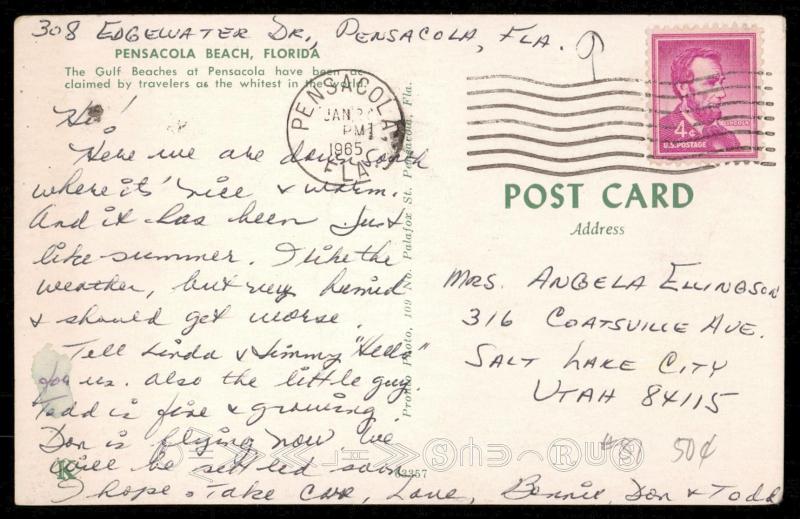 308 EDGEWATER DR., PENSACOLA, FLA.
PENSACOLA BEACH, FLORIDA
The Gulf Beaches at Pensacola have been ac-
claimed by travelers as the whitest in the world.
Hi!
Here we are down south
where it's nice & warm.
And it has been just
like summer. I like the
weather, but very humid
& should get worse.
Tell Linda & Jimmy "Hello"
for us. Also the little guy.
Todd is fine & growing.
Don is flying now. We
will be settled soon
I hope. Take care, Love, Bonnie, Don & Todd
K
63357
Pronto Photo, 109 No. Palafox St. Pensacola, Fla.
PENSACOLA
JAN
PM
1965
FLA
4¢
LINCOLN
U.S. POSTAGE
POST CARD
Address
MRS. ANGELA ELLINGSON
316 COATSVILLE AVE.
SALT LAKE CITY
UTAH 84115
50¢